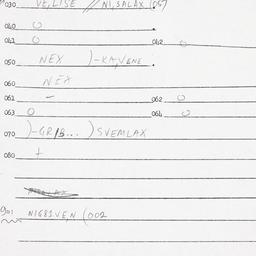 030 VE, LISE // NI, SALAX (057)
040 O
041 O 042 O
050 NEX )-KA, VENE.
060 NEX
061 - 062 O
063 O 064 O
070 )-GR/B...)SVEMLAX
080 +
901 NIG81VE, N (002